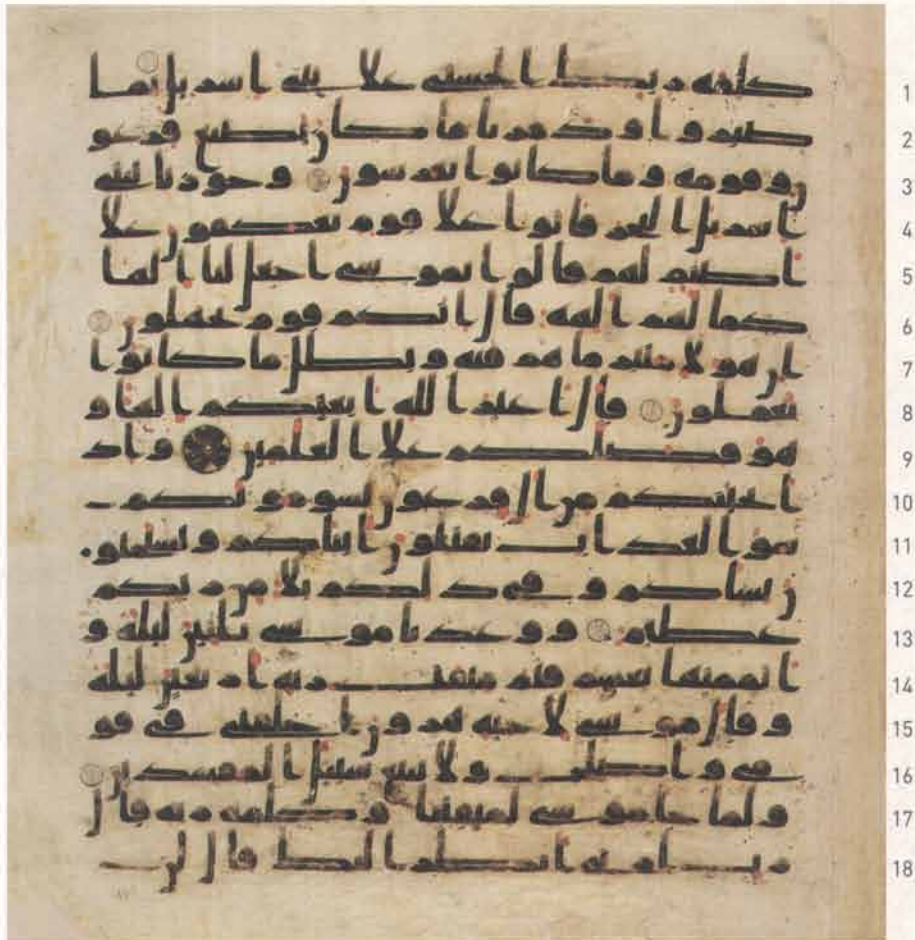 كلمة ربك الحسنى علا بني اسريل بما 1
صبروا ودمرنا ما كان يصنع فرعو 2
ن وقومه وما كانوا يعرشون وجوزنا ببني 3
اسريل البحر فاتوا علا قوم يعكفون علا 4
اصنم لهم قالوا يموسى اجعل لنا الها 5
كما لهم الهة قال انكم قوم تجهلون 6
ان هولا متبر ما هم فيه وبطل ما كانوا 7
يعملون قال اغير الله ابغيكم الها و 8
هو فضلكم علا العلمين واذ 9
انجينكم من ال فرعون يسومونكم 10
سو العذاب يقتلون ابناكم ويستحيو 11
ن نساكم وفي ذلكم بلا من ربكم 12
عظيم ووعدنا موسى ثلثين ليلة و 13
اتممنها بعشر فتم ميقت ربه اربعين ليلة 14
وقال موسى لاخيه هرون اخلفني في قو 15
مي واصلح ولا تتبع سبيل المفسدين 16
ولما جا موسى لميقتنا وكلمه ربه قال 17
رب ارني انظر اليك قال لن 18